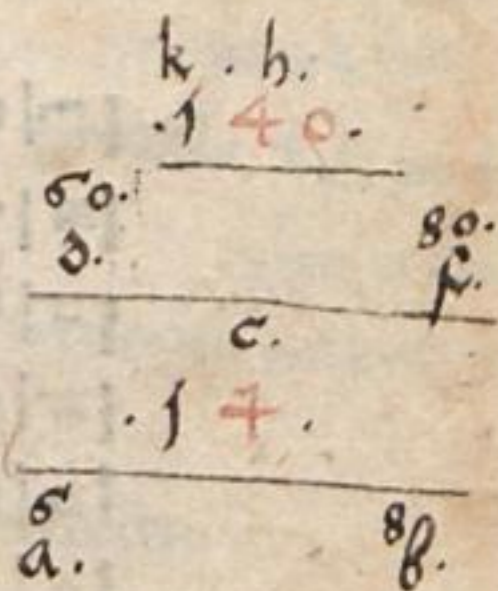 k . h.
.1 4 0.
60. 80.
d. f.
c.
.1 4 .
6 8
a. b.